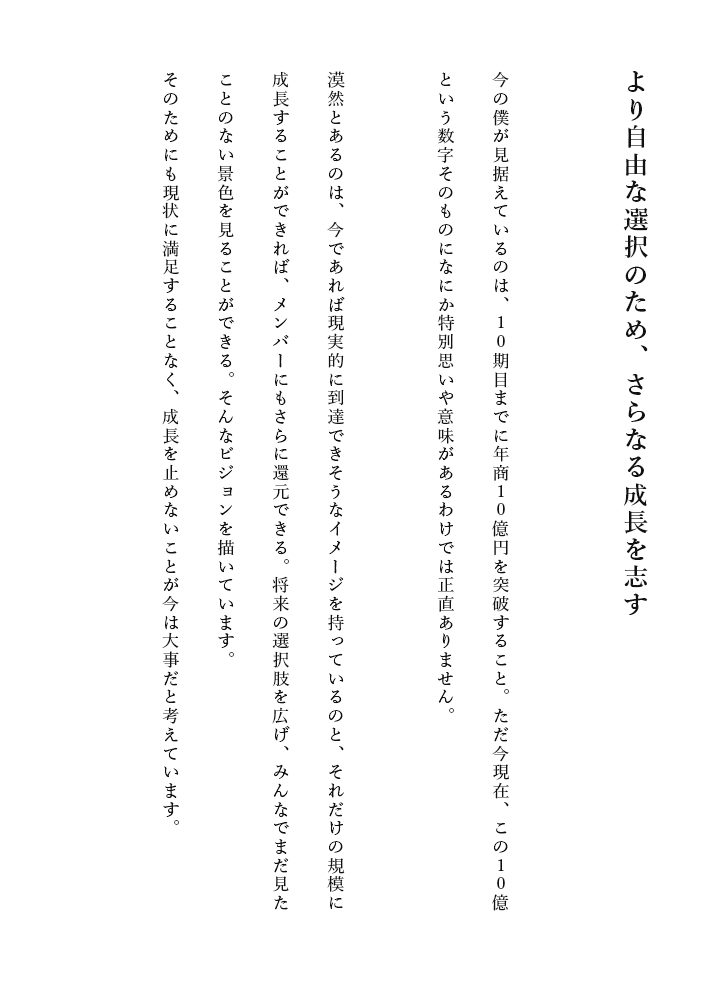 より自由な選択のため、さらなる成長を志す
今の僕が見据えているのは、10期目までに年商10億円を突破すること。ただ今現在、この10億
という数字そのものになにか特別思いや意味があるわけでは正直ありません。
漠然とあるのは、今であれば現実的に到達できそうなイメージを持っているのと、それだけの規模に
成長することができれば、メンバーにもさらに還元できる。将来の選択肢を広げ、みんなでまだ見た
ことのない景色を見ることができる。そんなビジョンを描いています。
そのためにも現状に満足することなく、成長を止めないことが今は大事だと考えています。